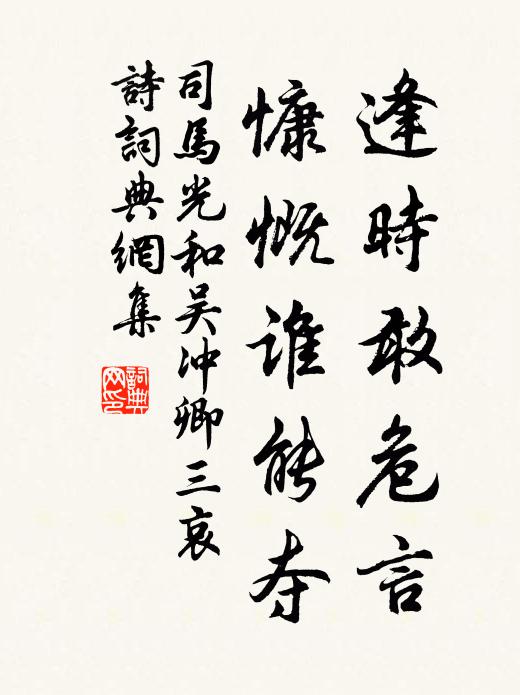 逢時敢危言
慷慨谁能夺
司馬光和吴冲卿三哀
詩詞典網集
詞典
网印